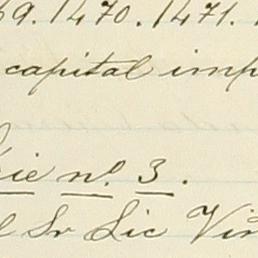 69.1470.1471.1
capital imp
ie nº 3.
l Sr Lic Vin